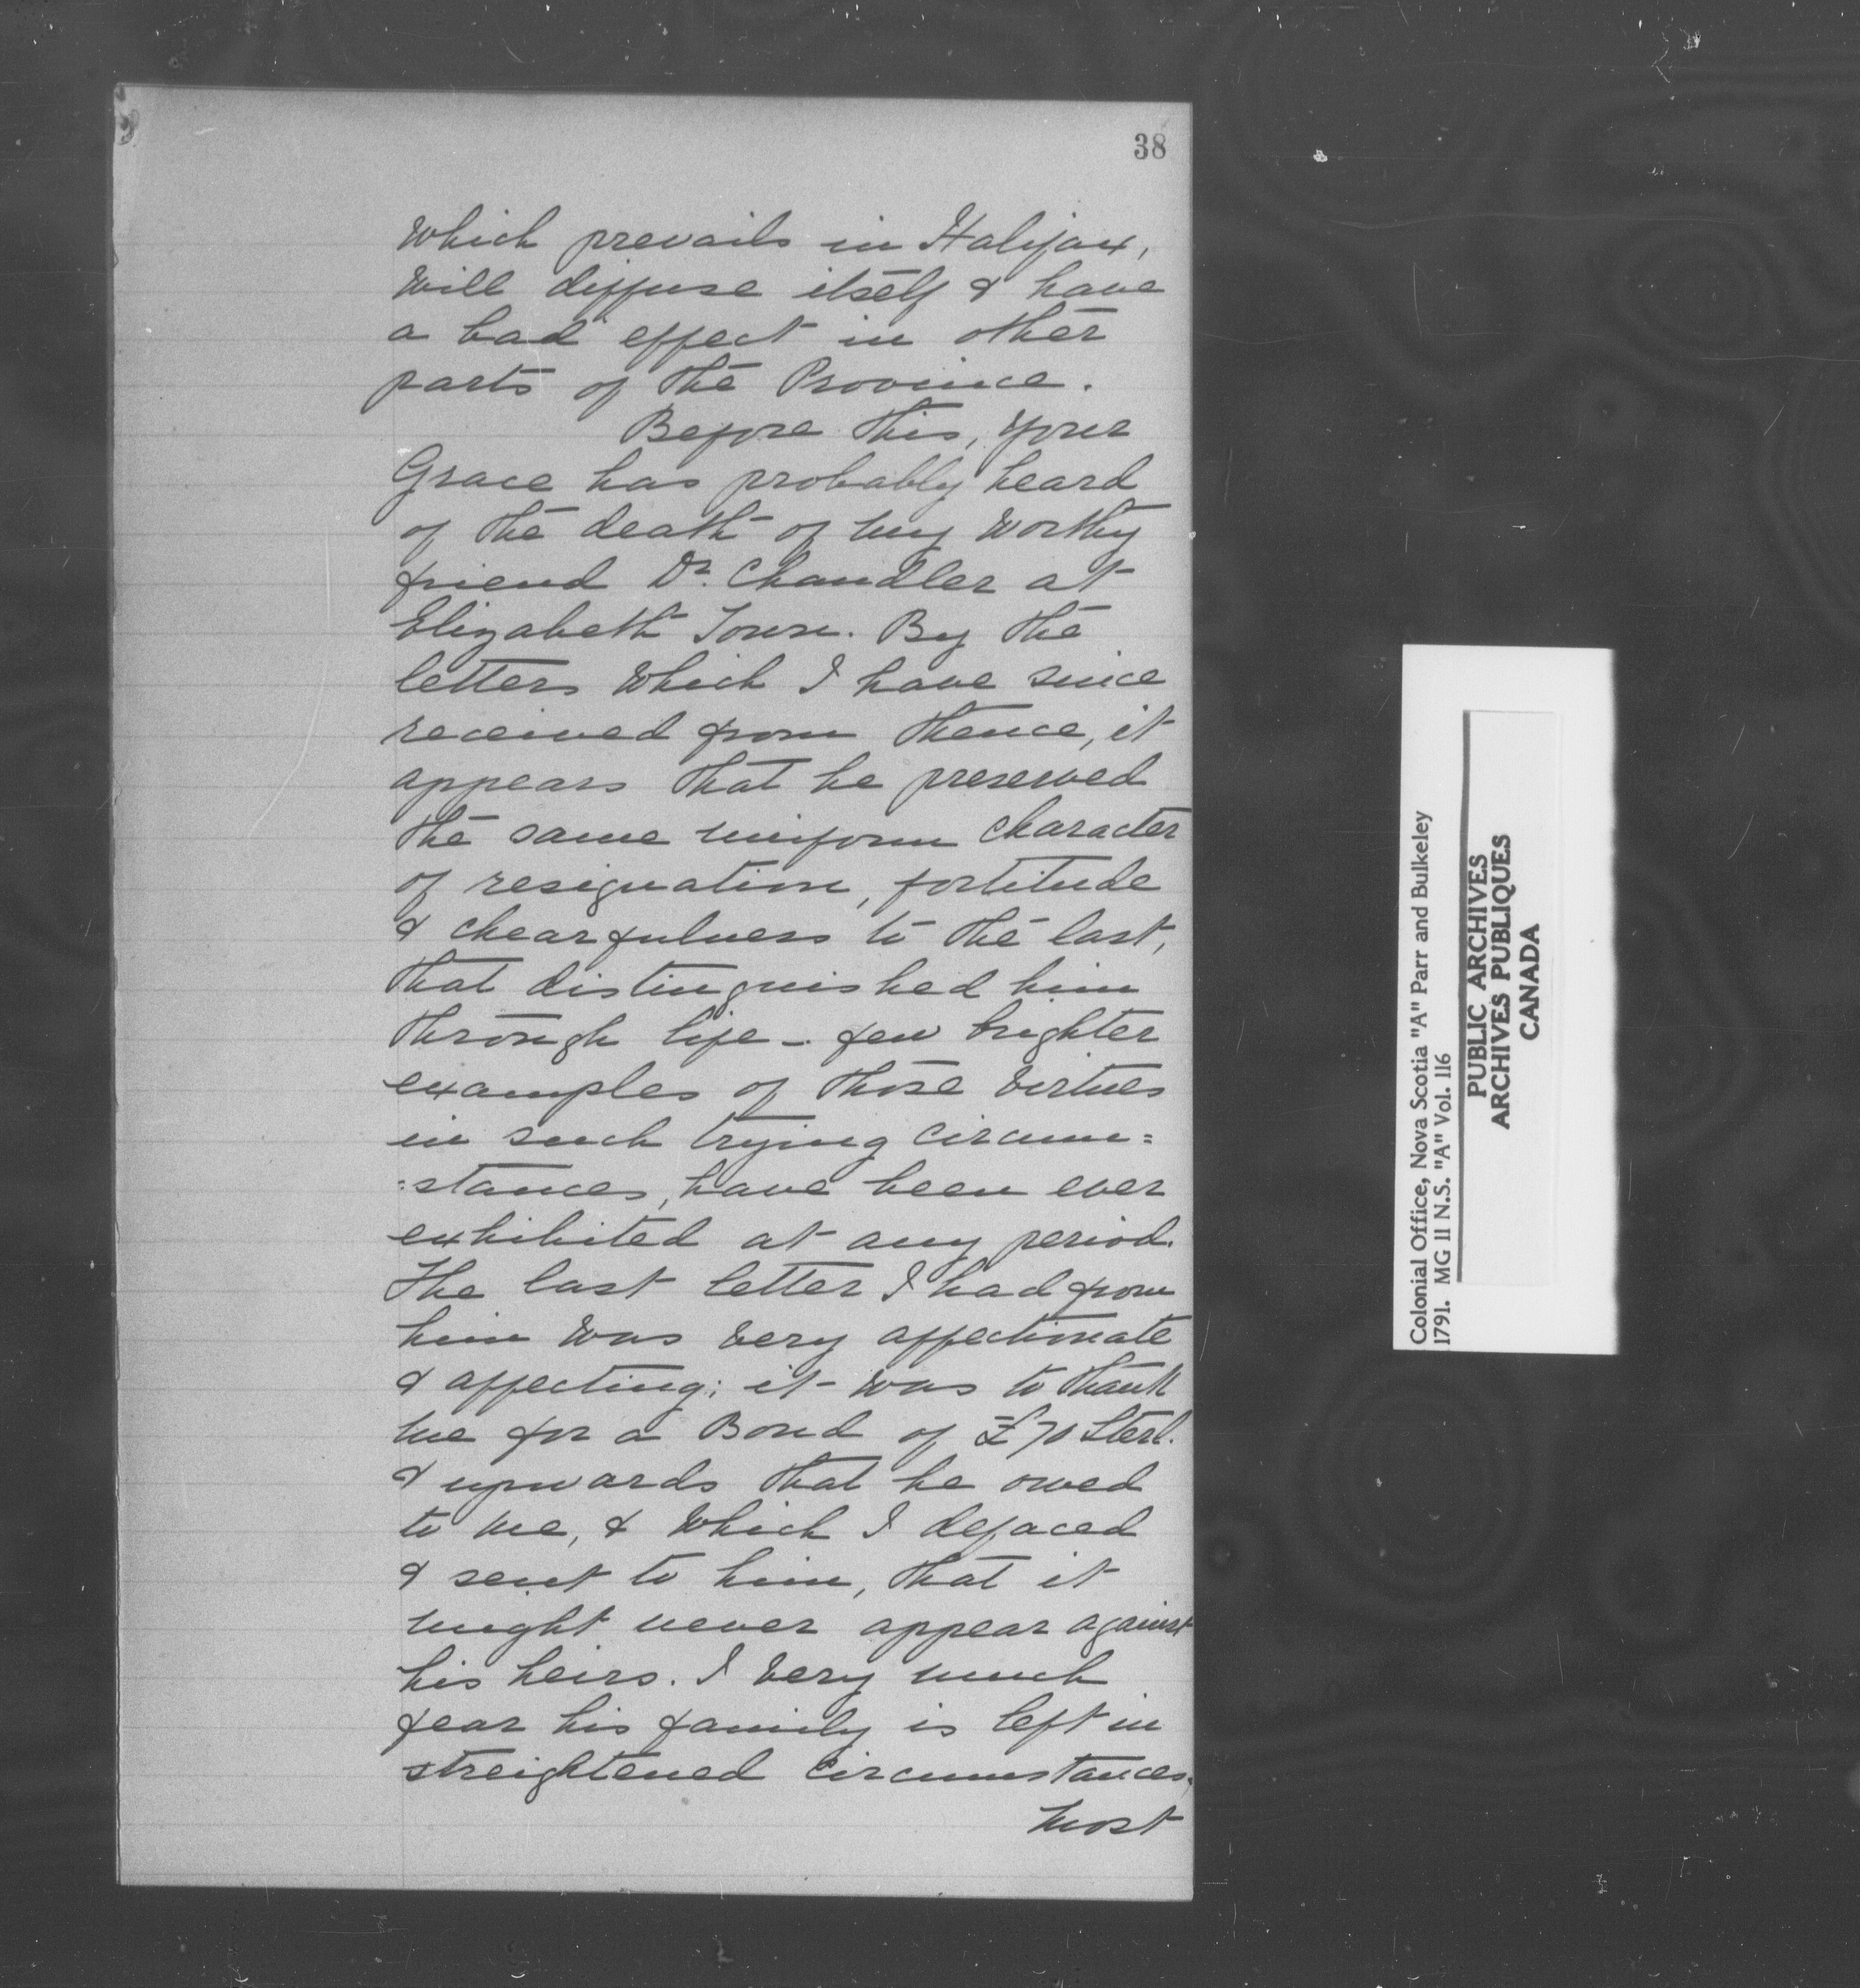 38
which prevails in Halifax,
will diffuse itself & have
a bad effect in other
parts of the Province.
Before this, your
Grace has probably heard
of the death of my worthy
friend Dr. Chandler at
Elizabeth Town. By the
letters which I have since
received from thence, it
appears that he preserved
the same uniform character
of resignation, fortitude
& chearfulness to the last,
that distinguished him
through life - few brighter
examples of those virtues
in such trying circum=
=stances, have been ever
exhibited at any period.
The last letter I had from
him was very affectionate
& affecting; it was to thank
me for a Bond of £70 Sterl.
& upwards that he owed
to me, & which I defaced
& sent to him, that it
might never appear against
his heirs. I very much
fear his family is left in
streightened circumstances,
most
Colonial Office, Nova Scotia "A" Parr and Bulkeley
1791. MG 11 N.S. "A" Vol. 116
PUBLIC ARCHIVES
ARCHIVES PUBLIQUES
CANADA